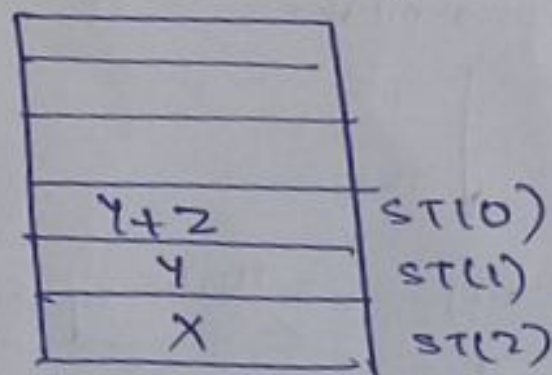 Y+Z ST(0)
Y ST(1)
X ST(2)